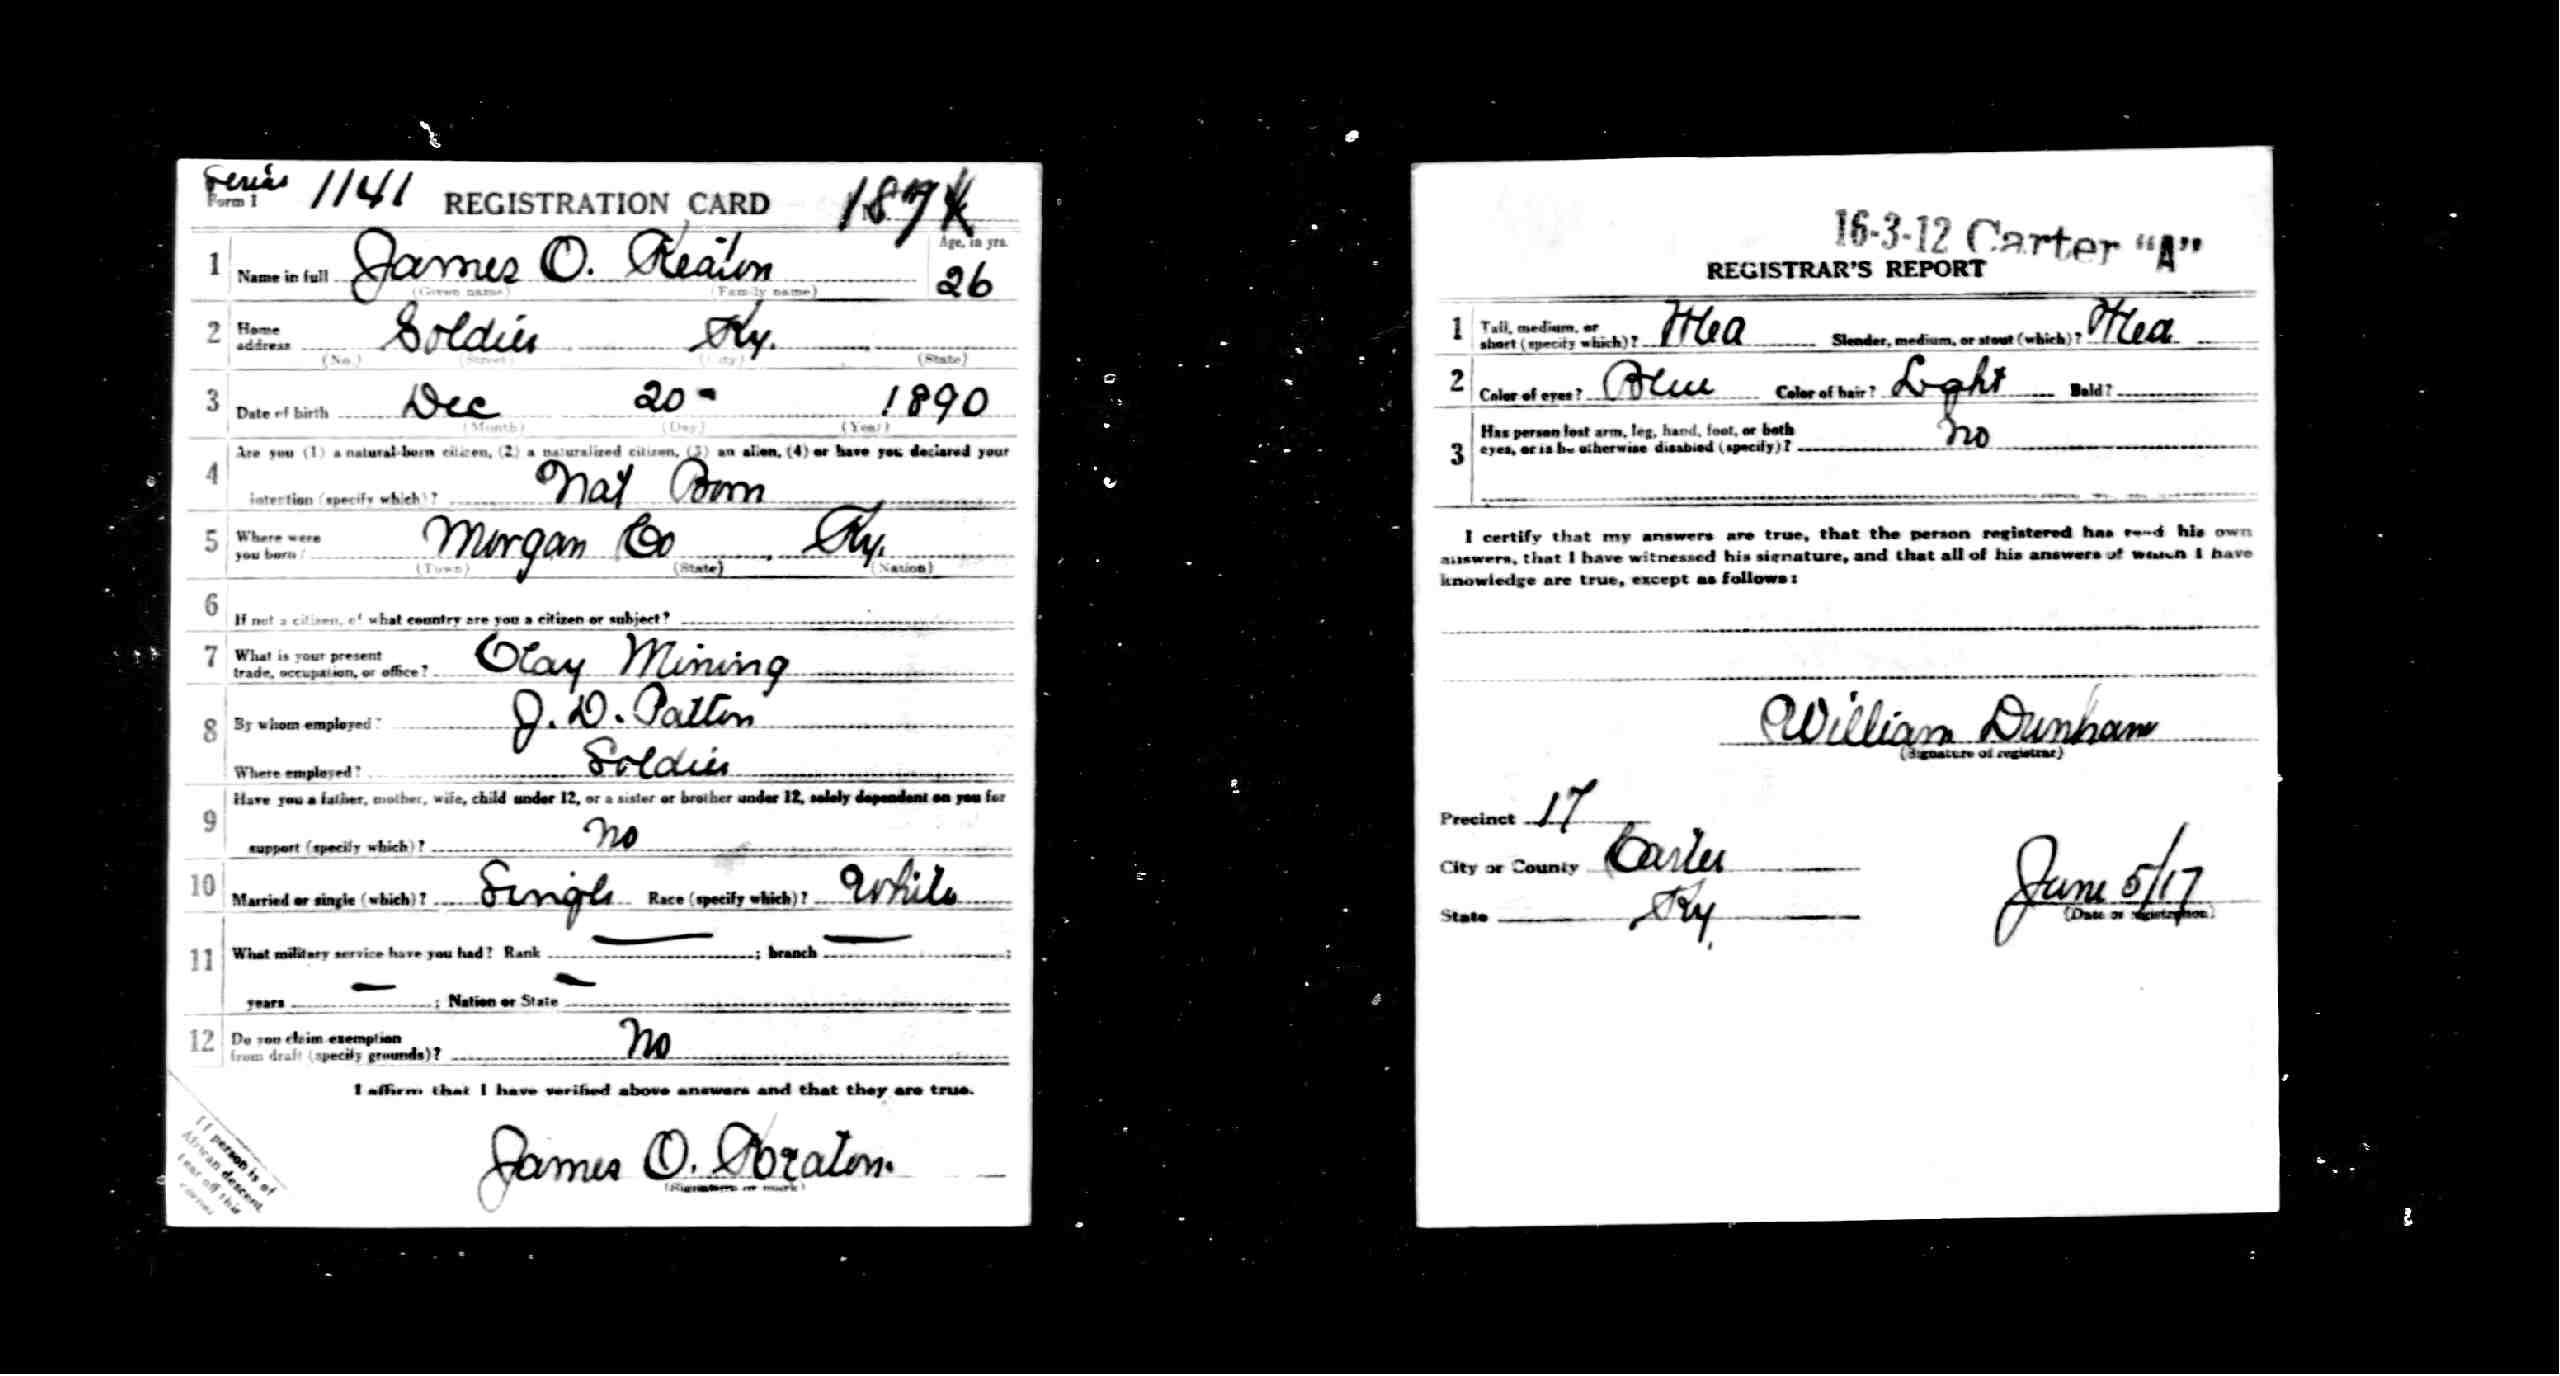 Serial 1141
Form 1
REGISTRATION CARD
187
Age, in yrs.
1 Name in full James O. Keaton 26
(Given name) (Family name)
2 Home address Soldier Ky.
(No.) (Street) (City) (State)
3 Date of birth Dec 20 - 1890
(Month) (Day) (Year)
Are you (1) a natural-born citizen, (2) a naturalized citizen, (3) an alien, (4) or have you declared your
4 intention (specify which)? Nat Born
5 Where were you born? Morgan Co Ky.
(Town) (State) (Nation)
6 If not a citizen, of what country are you a citizen or subject?
7 What is your present trade, occupation, or office? Clay Mining
8 By whom employed? J. D. Patton
Where employed? Soldier
Have you a father, mother, wife, child under 12, or a sister or brother under 12, solely dependent on you for
9 support (specify which)? No
10 Married or single (which)? Single Race (specify which)? White
11 What military service have you had? Rank — ; branch — ;
years — ; Nation or State —
12 Do you claim exemption from draft (specify grounds)? No
I affirm that I have verified above answers and that they are true.
James O. Keaton.
(Signature or mark)
If person is of
African descent,
tear off this
corner
16-3-12 Carter "A"
REGISTRAR'S REPORT
1 Tall, medium, or short (specify which)? Med Slender, medium, or stout (which)? Med
2 Color of eyes? Blue Color of hair? Light Bald?
3 Has person lost arm, leg, hand, foot, or both eyes, or is he otherwise disabled (specify)? No
I certify that my answers are true, that the person registered has read his own
answers, that I have witnessed his signature, and that all of his answers of which I have
knowledge are true, except as follows:
William Dunham
(Signature of registrar)
Precinct 17
City or County Carter
State Ky.
June 5/17
(Date of registration)